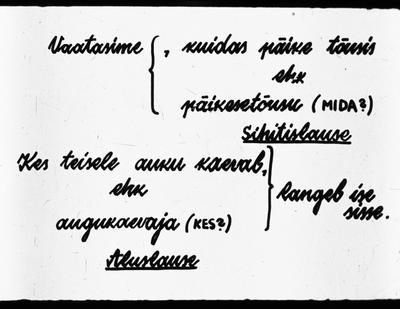 Vaatasime { , kuidas päike tõusis
ehk
päikesetõusu (MIDA?)
Sihitislause
Kes teisele auku kaevab, } langeb ise
ehk
sisse.
augukaevaja (KES?)
Aluslause